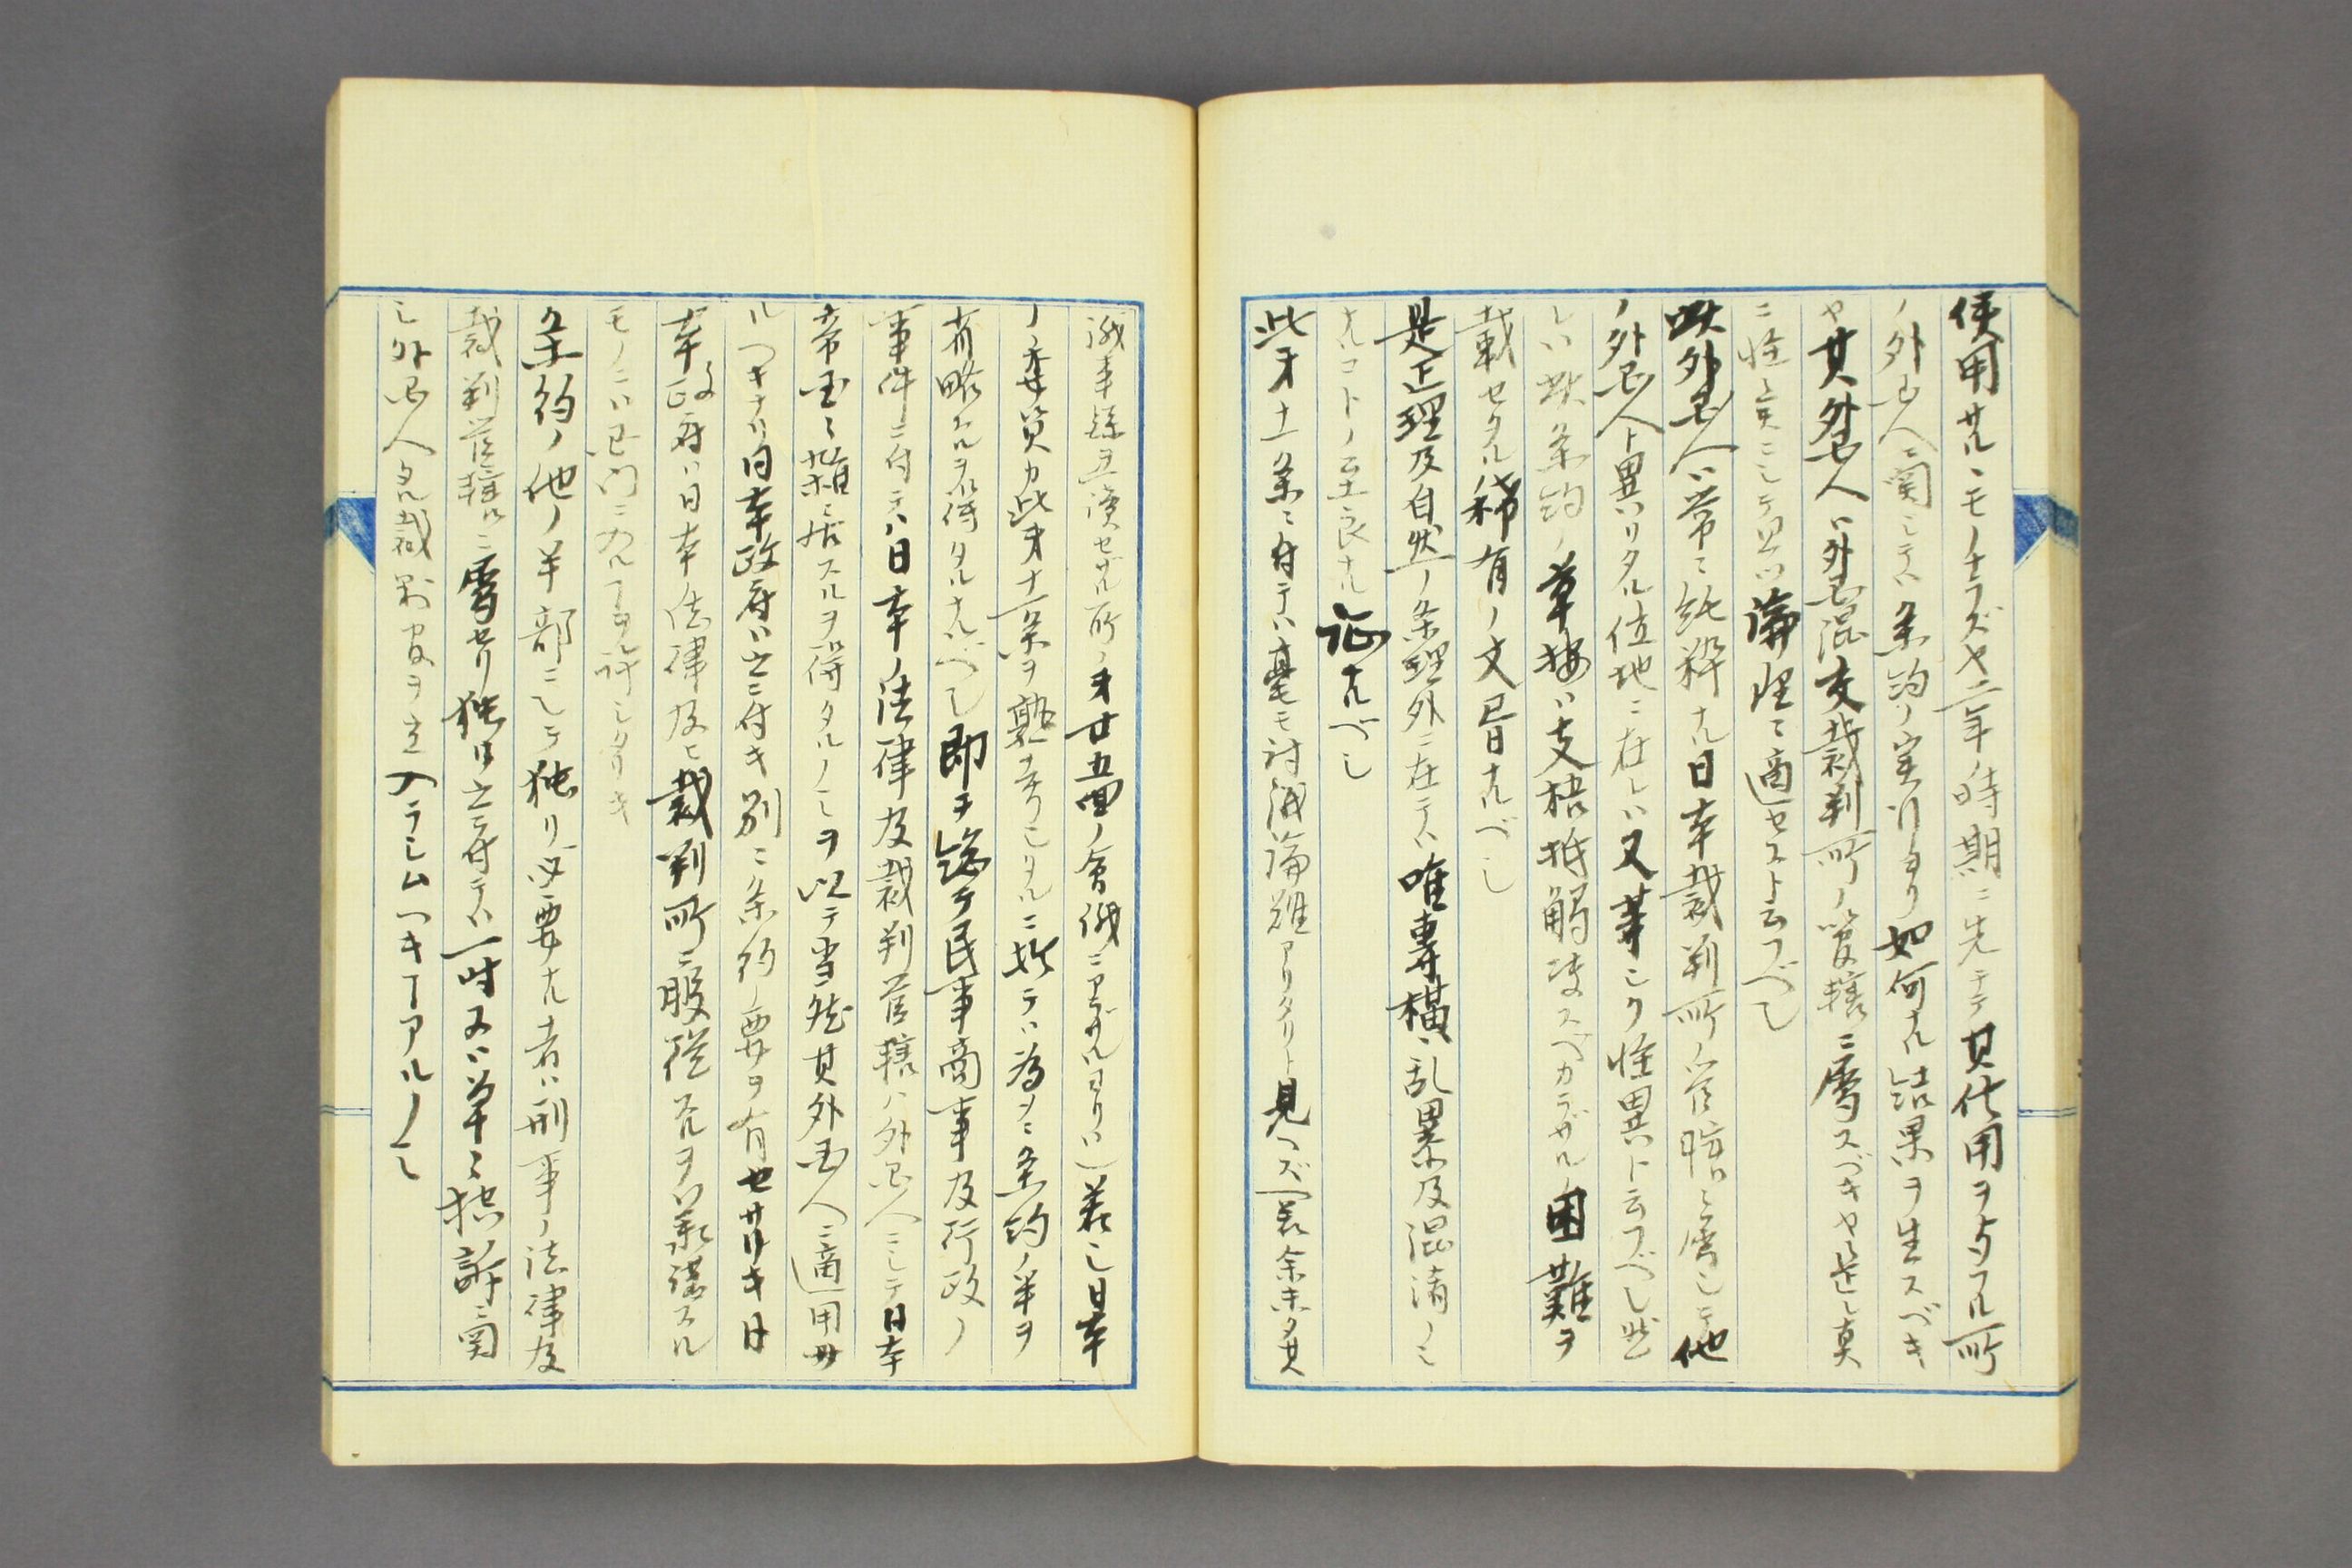 使用サルヽモノナラズヤ二年ノ時期ニ先テテ其仕用ヲ与フル所
ノ外国人ニ関シテハ条約ノ実行ヨリ如何ナル結果ヲ生スベキ
ヤ其外国人ハ外国混交裁判所ノ管轄ニ属スベキヤ是レ真
ニ怪異ニシテ又ハ論理ニ適セスト云フベシ
此外国人ハ常ニ純粋ナル日本裁判所ノ管轄ニ属シテ他
ノ外国人ト異リタル位地ニ在レハ又葦シク怪異ト云フベシ此
レハ此条約ノ草按ハ支梧抵觸
載セタル稀有ノ文書ナルベシ
是正理及自然ノ条理外ニ在テハ唯専横乱累及混淆ノミ
ナルコトノ至良ナル証ナルベシ
此才十一条ニ付テハ毫モ討議論難アリタリト見ヘズ余未タ其
議事録ヲ渡セザル所ノ才廿五回ノ会議ニアラザルヨリハ若シ日本
ノ委員カ此才十一条ヲ熟考シタルニ於テハ為メニ条約ノ半ヲ
省略スルヲ得タルナルベシ即チ総テ民事商事及行政ノ
事件ニ付テハ日本ノ法律及裁判管轄ハ外国人ニシテ日本
帝国ニ雑居スルヲ得タルノミヲ以テ当然其外国人ニ適用サ
ルヘキナリ日本政府ハ之ニ付キ別ニ条約ノ要ヲ有セサリキ日
本政府ハ日本法律及ヒ裁判所ニ服従スルヲ承諾スル
モノニハ国門ニ入ルヿヲ許シタリキ
条約ノ他ノ半部ニシテ独リ必要ナル者ハ刑事ノ法律及
裁判管轄ニ属セリ独リ之ニ付テハ一時又ハ単ニ控訴ニ関
シ外国人タル裁判官ヲ立入ラシムヘキヿアルノミ